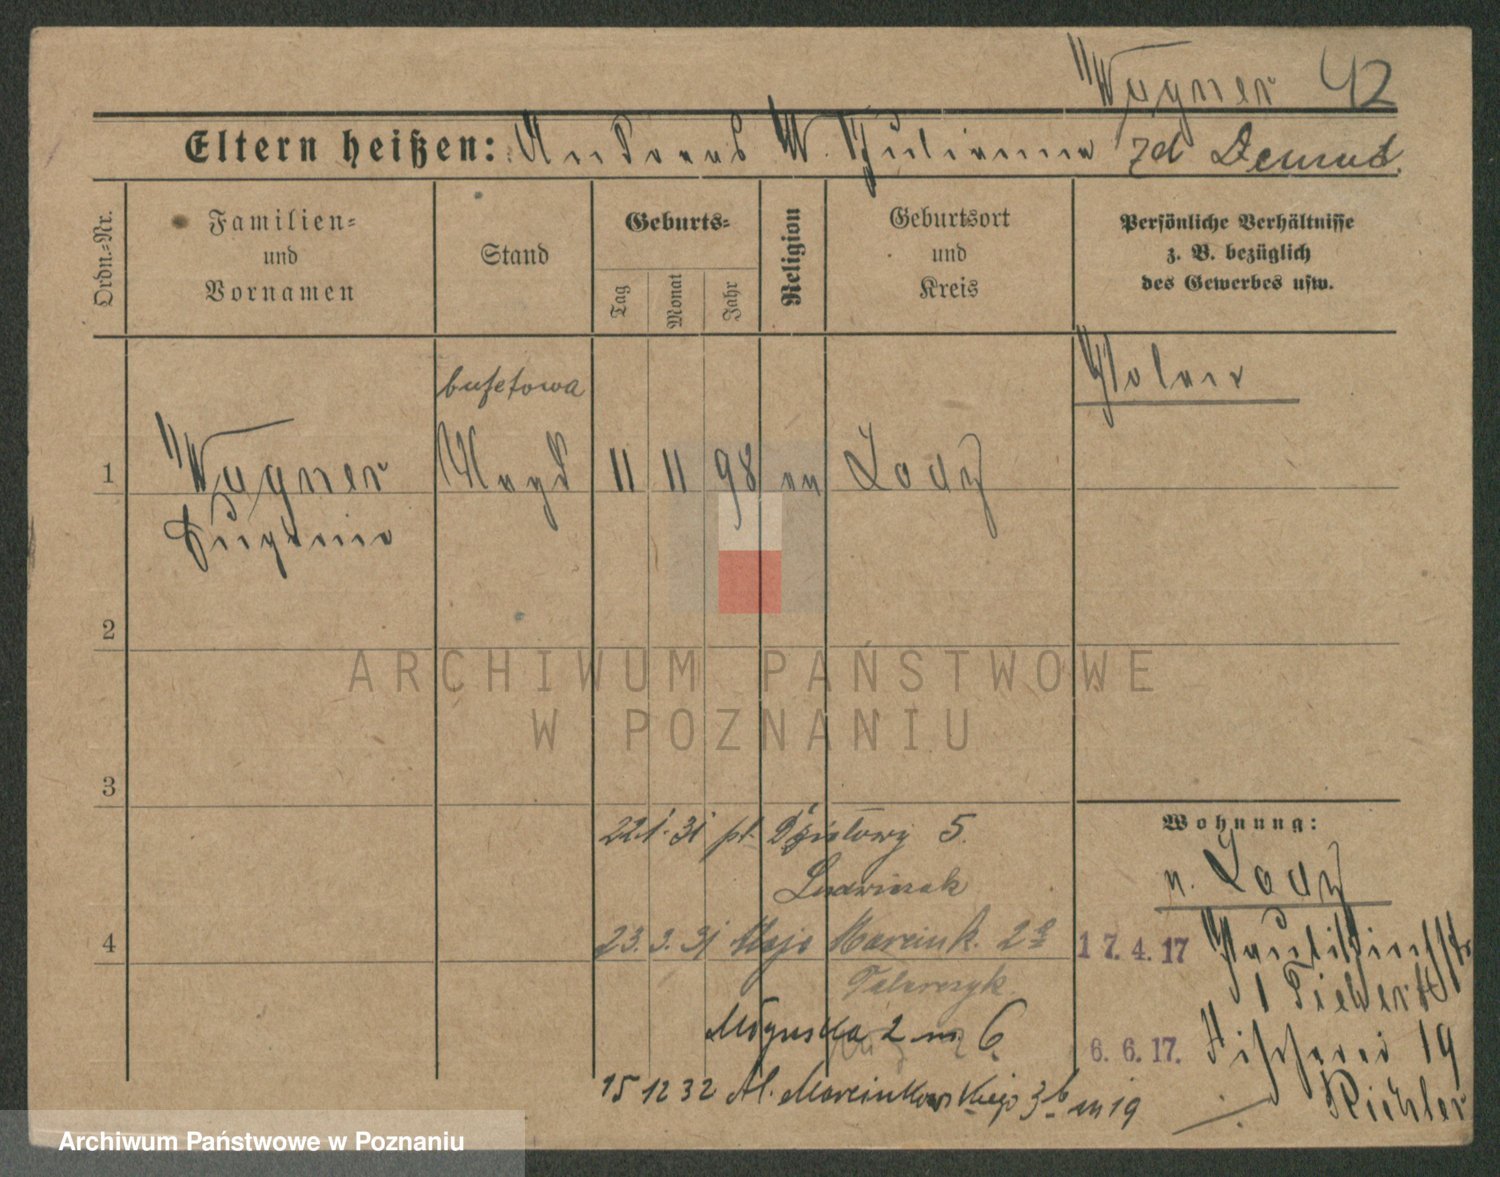 Wagner 42
Eltern heißen: Andreas W. Julianna zd
Ordn.-Nr.
Familien-
und
Vornamen
Stand
Geburts-
Tag
Monat
Jahr
Religion
Geburtsort
und
Kreis
Persönliche Verhältnisse
z. B. bezüglich
des Gewerbes usw.
bufetowa
1 Wagner Magd 11 11 98 ev Lodz
Eugenie
2
ARCHIWUM PAŃSTWOWE
W POZNANIU
3
Wohnung:
22.1.31 pl. Działowy 5.
n. Lodz
Ludwiczak
4
23.3.31 Marcink. 2
17.4.17
Talarczyk
Mogilska 2 m 6
6.6.17. Fischerei 19
15 12 32 Al. Marcinkowskiego 3b m 19
Richter
Archiwum Państwowe w Poznaniu